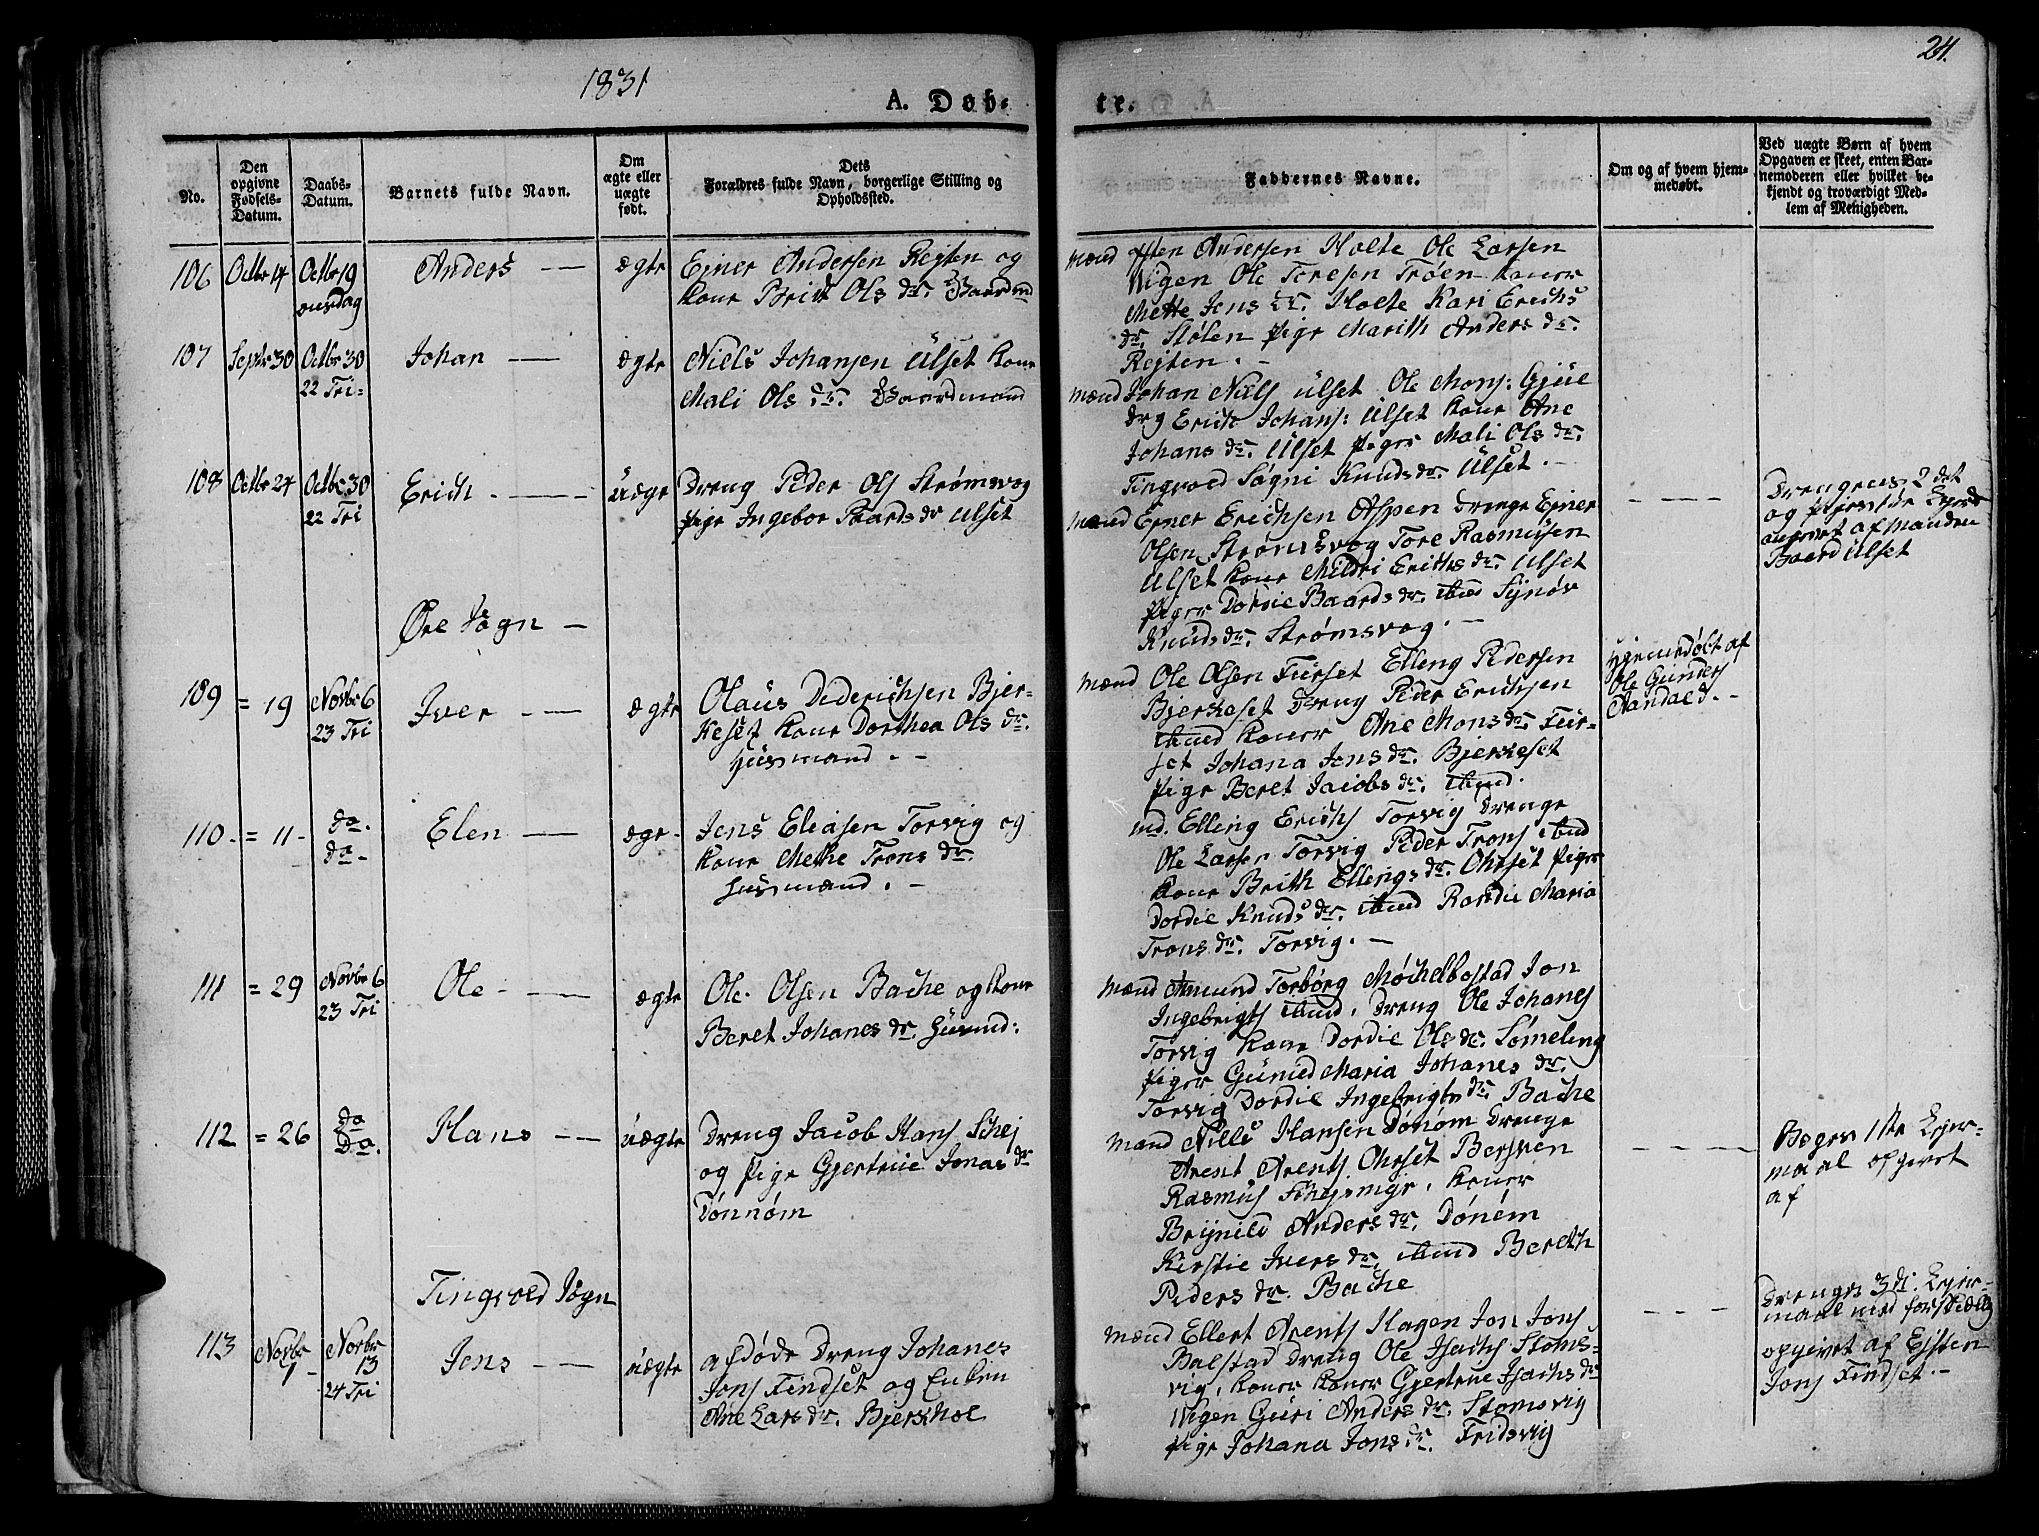 1831
A. Døb-
te.
24.
No.
Den opgivne Fødsels-Datum.
Daabs-Datum.
Barnets fulde Navn.
Om ægte eller uægte født.
Dets Forældres fulde Navn, borgerlige Stilling og Opholdssted.
Faddernes Navne.
Om og af hvem hjemmedøbt.
Ved uægte Børn af hvem Opgaven er skeet, enten Barnemoderen eller hvilket bekjendt og troværdigt Medlem af Menigheden.
106 Octbr 14 Octbr 19 Anders ægte Ejner Andersen Rejten og
onsdag Kone Brit Ols dr. Gaardmd
mænd Andersen Holte Ole Larsen
Vigen Ole Toresen Trøen Koner
Mette Jens dr. Holte Kari Erichs
dr. Stølen Pige Marith Anders dr.
Rejten.
107 Septbr 30 Octbr 30 Johan ægte Niels Johansen Ulset Kone
22 Tri: Mali Ols dr. Gaardmand
mænd Johan Niels Ulset Ole Mons: Gjül
Drg Erich Johans: Ulset Kone Ane
Johans dr. Ulset Piger Mali Ols dr.
Tingvold Sogn Knuds dr. Ulset.
108 Octbr 24 Octbr 30 Erich uægte Dreng Peder Ols Strømsvog
22 Tri Pige Ingebor Baards dr Ulset
mænd Ejner Erichsen Aspen Drenge Ejner
Olsen Strømsvog Tore Rasmusen
Ulset Kone Mildri Erichs dr. Ulset
Piger Dordie Baards dr. ibid Synøv
Knuds dr. Strømsvog.
Drengens 2 det
og Pigens
angivet af Manden
Baard Ulset
Øre Sogn
109 = 19 Novbr 6 Iver ægte Olaus Dederichsen Bjer-
23 Tri keset Kone Dorthea Ols dr.
Husmand.
mænd Ole Olsen Furset Elling Pedersen
Bjerkeset Dreng Peder Erichsen
ibid Koner Ane Mons dr. Fur-
set Johana Jens dr. Bjerkeset
Pige Beret Jacobs dr. ibid.
Hjemedøbt af
Ole Gunders
Aandal.
110. = 11 do. Elen ægte Jens Eliasen Torvig og
do. Kone Methe Trons dr.
Husmænd.
md. Elling Erichs Torvig Drenge
Ole Larsen Torvig Peder Trons ibid
Kone Brith Ellings dr. Ohrset Piger
Dordie Knuds dr. ibid Randie Maria
Trons dr. Torvig.
111 = 29 Novbr 6 Ole ægte Ole Olsen Bache og Kone
23 Tri Beret Johanes dr. Husmd:
mænd Amund Torborg Møchelbostad Jon
Ingebrigts ibid, Dreng Ole Johanes
Torvig Kone Dordie Ols dr. Sømeling
Piger Gunild Maria Johanes dr.
Torvig Dordie Ingebrigts dr. Bache
112 = 26 do Hans uægte Dreng Jacob Hans Schej
Do. og Pige Gjertrue Jonas dr
Dønnøm
mænd Nills Hansen Dønøm Drenge
Arent Arents Ohrset Bersven
Rasmus Schejsmyr, Koner
Brynild Anders dr. Dønem
Kirstie Ivers dr. ibid Bereth
Peders dr. Bache
Beges 1ste Lejer-
maal opgivet
af
Tingvold Sogn
113 Novbr 1 Novbr 13 Jens uægte afdøde Dreng Johanes
24 Tri Jons Findset og Enken
Ane Lars dr. Bjerkhol
mænd Ellert Arents Hagen Jon Jons
Balstad Dreng Ole Isachs Stoms-
vig, Koner Koner Gjertrue Isachs dr
Vigen Guri Anders dr. Stomsvig
Pige Johana Jons dr. Fridsvig
Drenges 3di Lejer-
maal med forskiellig
opgivet af Ejsten
Jons Findset.